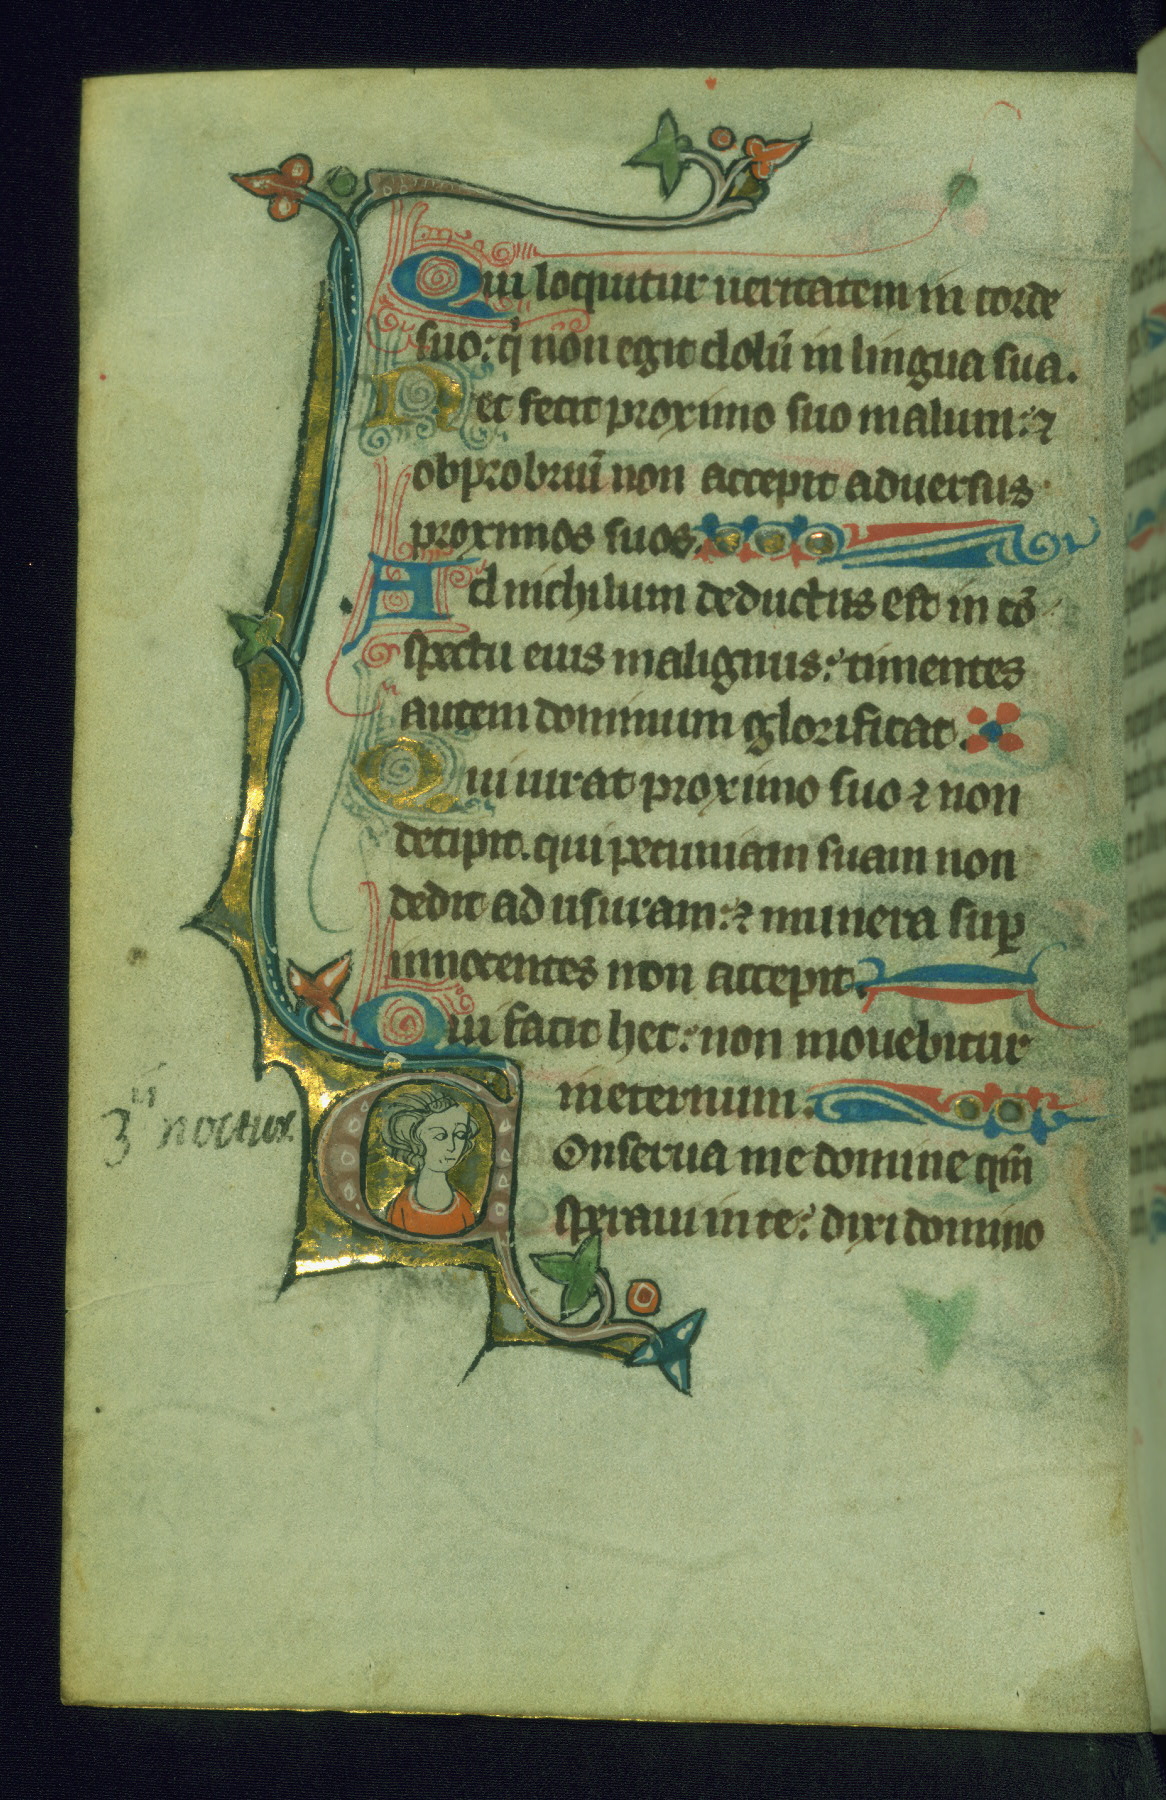 Qui loquitur ueritatem in corde
suo: qi non egit dolū in lingua sua.
Nec fecit proximo suo malum: ⁊
obprobriū non accepit aduersus
proximos suos.
Ad nichilum deductus est in cō
spectu eius malignus: timentes
autem dominum glorificat.
Qui iurat proximo suo ⁊ non
decipit. qui pecuniam suam non
dedit ad usuram: ⁊ munera suꝑ
innocentes non accepit.
Qui facit hec: non mouebitur
in eternum.
Conserua me domine qm̄
speraui in te: dixi domino
3ii noctur.